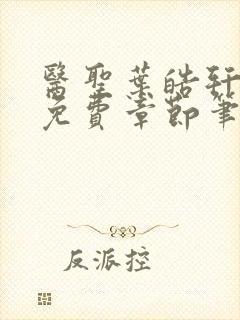 醫聖葉皓軒
免費章節筆
反派控